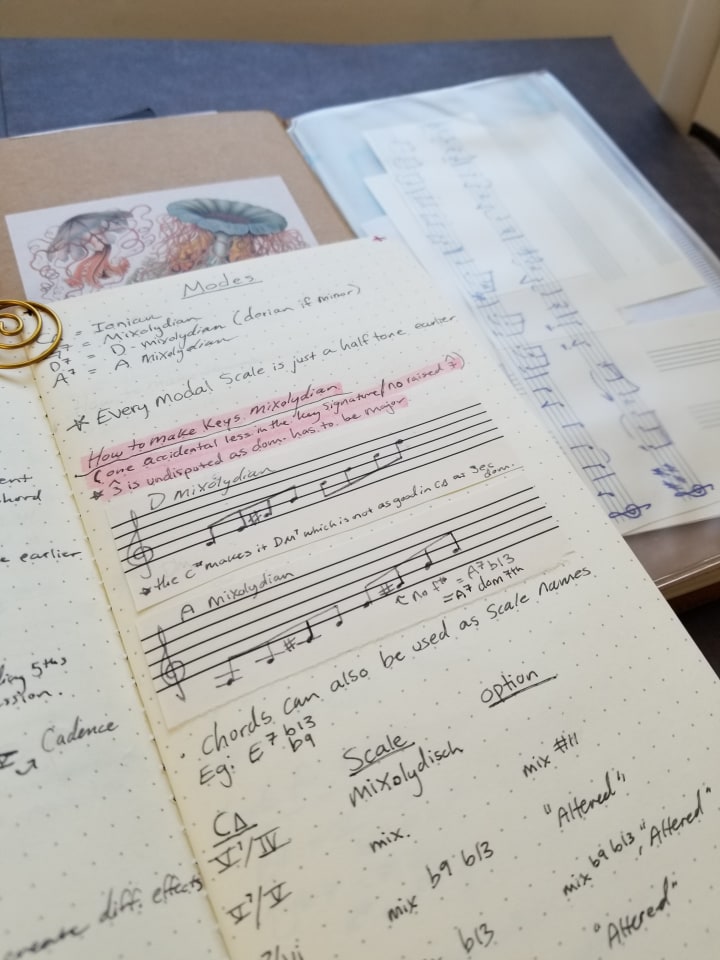 Modes
= Ionian
= Mixolydian
D7 = D - mixolydian (dorian if minor)
A7 = A mixolydian
* Every Modal Scale is just a half tone earlier
How to make Keys mixolydian
(one accidental less in the key signature/no raised 7)
* 3 is undisputed as dom. has to be major.
D mixolydian
* the C# makes it DM7 which is not as good in C∆ as sec dom.
A mixolydian
no f# = A7b13
= A7 dom 7th
• Chords can also be used as Scale names
Eg: E7 b13
b9
Scale
option
C∆
mixolydisch
mix #11
V7/IV
mix.
"Altered",
V7/V
mix b9 b13
mix b9 b13, "Altered"
/vi
b13
"Altered"
chord
e earlier
5ths
Cadence
create diff. effects